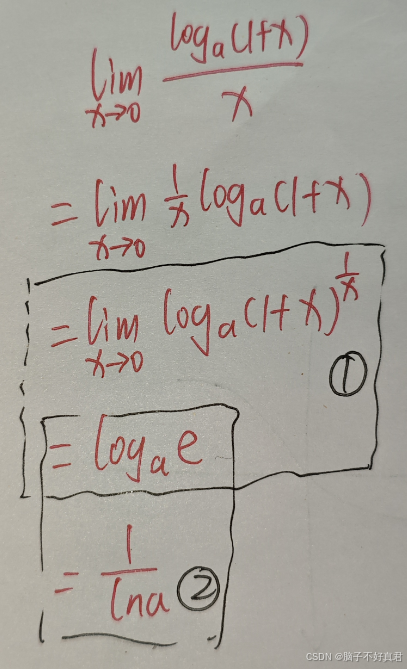 lim x→0 logₐ(1+x) / x
= lim x→0 1/x logₐ(1+x)
= lim x→0 logₐ(1+x)^(1/x)
①
= logₐe
= 1/lna ②
CSDN @脑子不好真君